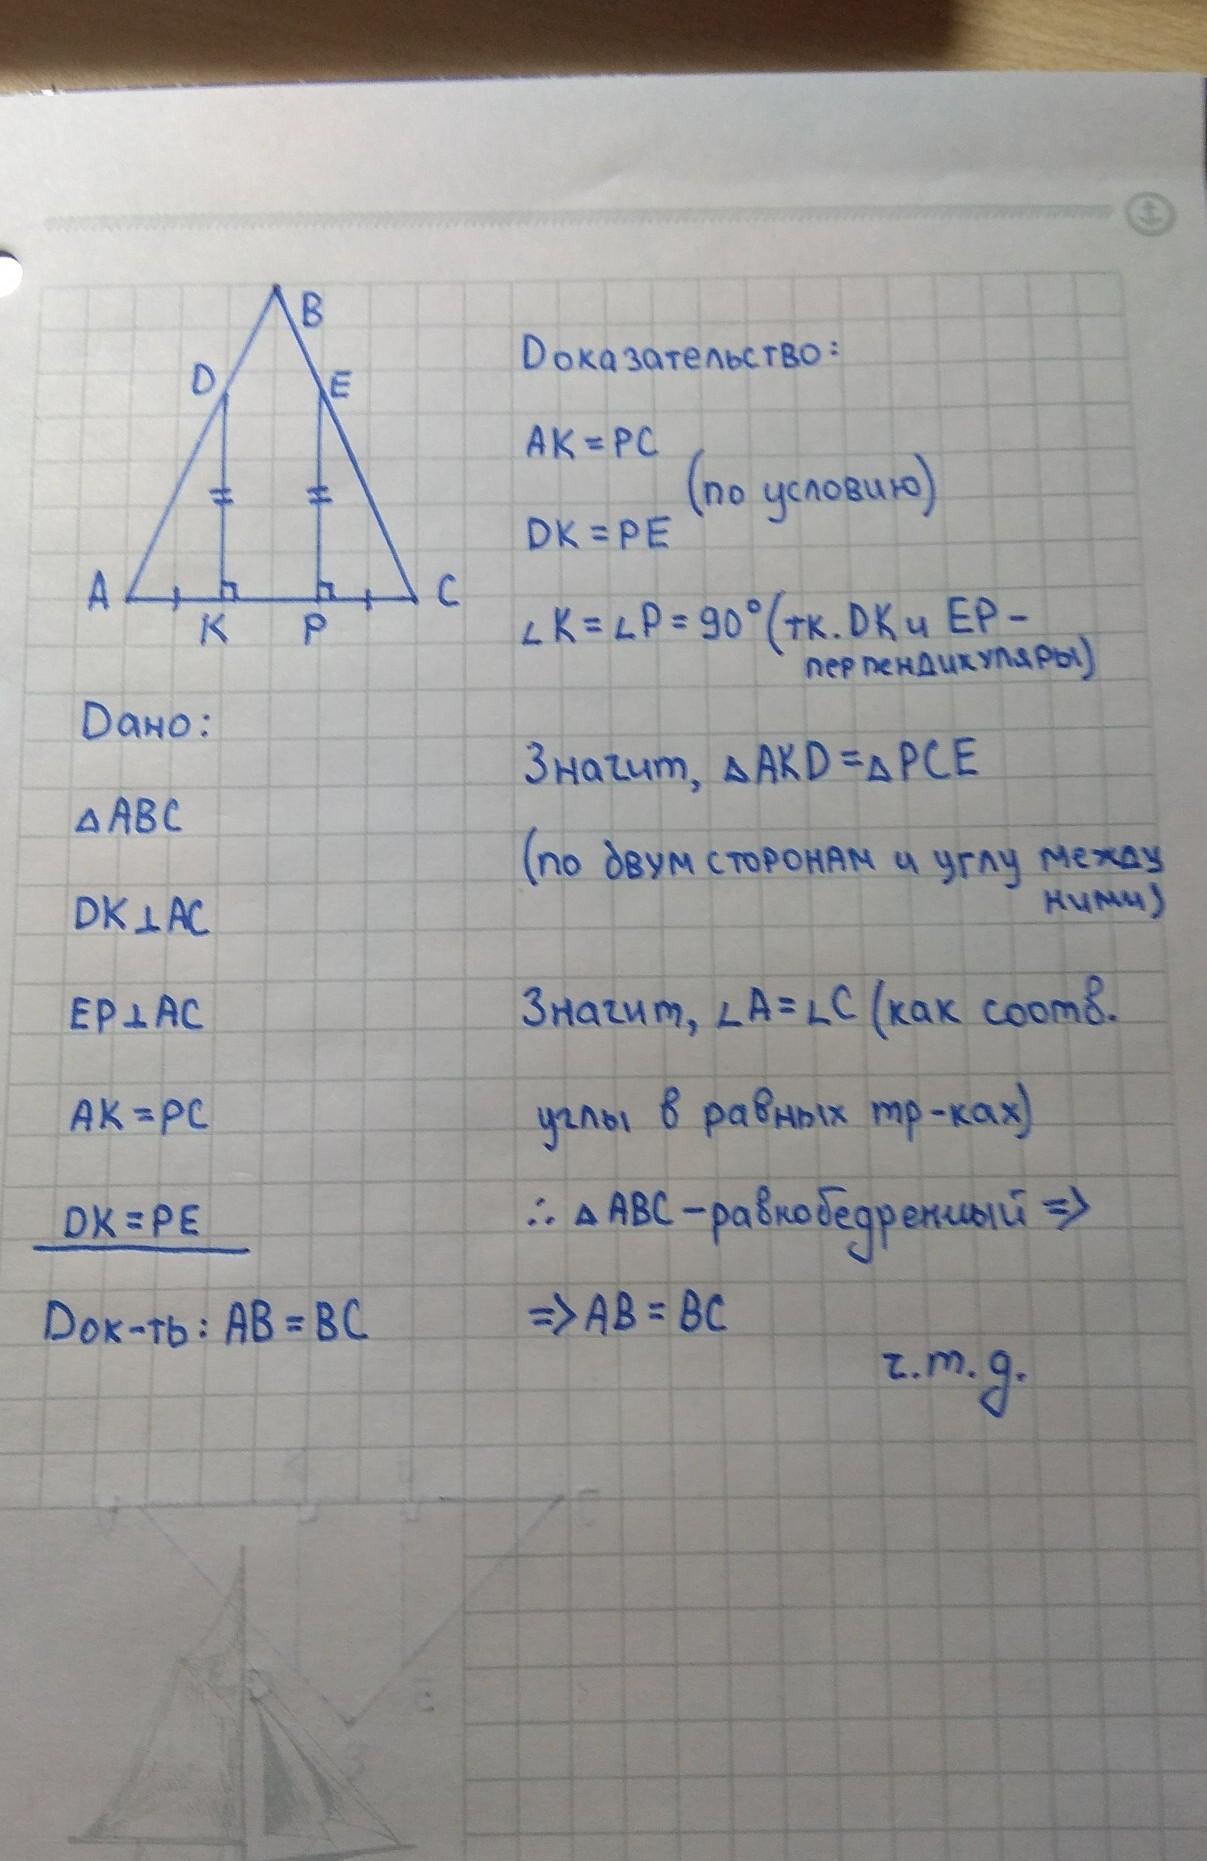 B
D
E
A
C
K
P
Дано:
△ABC
DK⊥AC
EP⊥AC
AK=PC
DK=PE
Док-ть: AB=BC
Доказательство:
AK=PC
(по условию)
DK=PE
∠K=∠P=90° (тк. DK и EP-
перпендикуляры)
Значит, △AKD=△PCE
(по двум сторонам и углу между
ними)
Значит, ∠A=∠C (как соотв.
углы в равных тр-ках)
∴ △ABC-равнобедренный =>
=> AB=BC
ч.т.д.